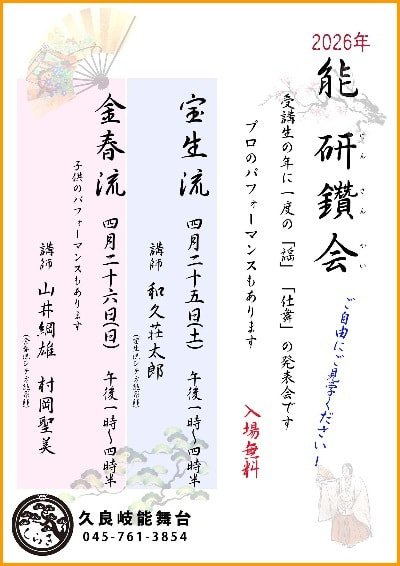 2026年
能 研鑽会
けん さん かい
受講生の年に一度の「謡」「仕舞」の発表会です
プロのパフォーマンスもあります
ご自由にご見学ください！
入場無料
宝生流 四月二十五日(土) 午後一時～四時半
講師 和久荘太郎
(宝生流シテ方能楽師)
金春流 四月二十六日(日) 午後一時～四時半
子供のパフォーマンスもあります
講師 山井綱雄 村岡聖美
(金春流シテ方能楽師)
くらき
久良岐能舞台
045-761-3854